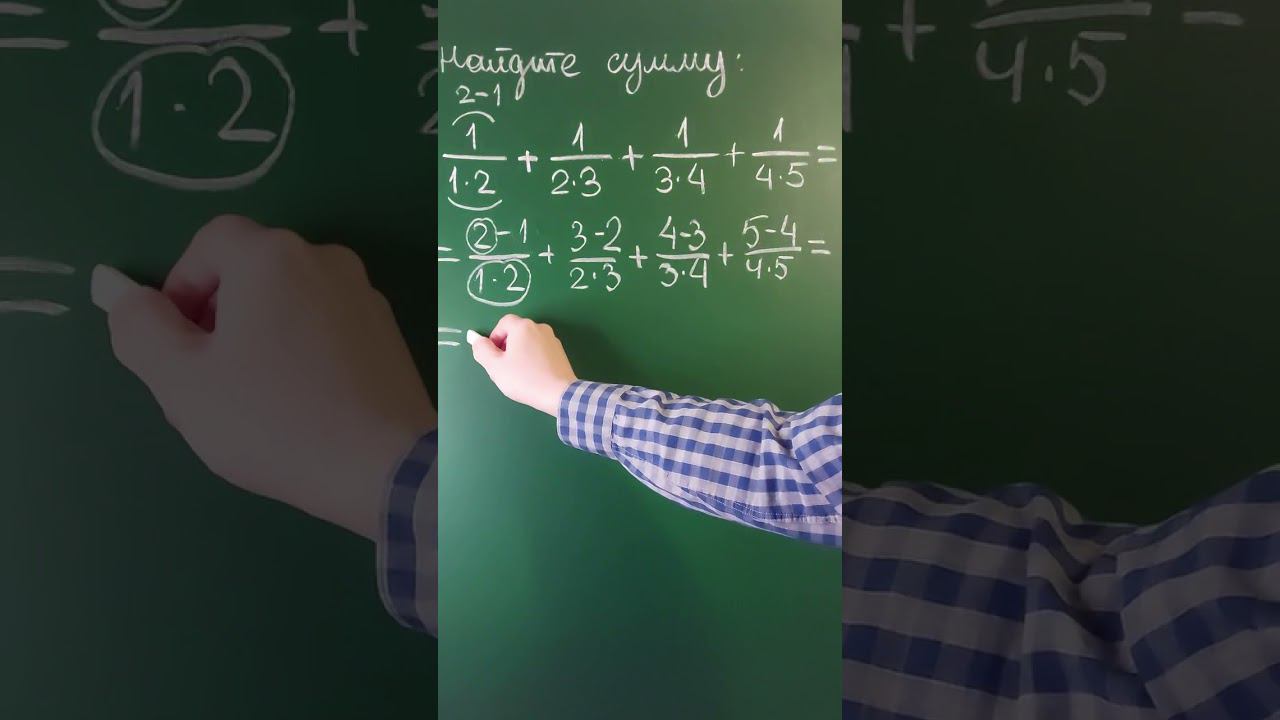 Найдите сумму:
2-1
1/(1·2) + 1/(2·3) + 1/(3·4) + 1/(4·5) =
= (2-1)/(1·2) + (3-2)/(2·3) + (4-3)/(3·4) + (5-4)/(4·5) =
=